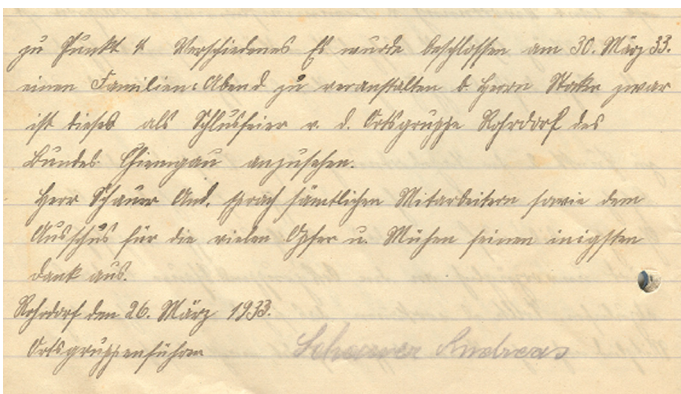 zu Punkt 4 Verschiedenes Es wurde beschlossen am 30. März 33.
einen Familien-Abend zu veranstalten b. Herrn zwar
ist dieses als Schlusfeier v. d. Ortsgruppe Rohrdorf des
Bundes Chiemgau anzusehen.
Herr Schauer And. sprach sämtlichen Mitarbeitern sowie dem
Ausschus für die vielen Opfer u. Mühen seinen inigsten
Dank aus.
Rohrdorf den 26. März 1933.
Ortsgruppenführer Schauer Andreas